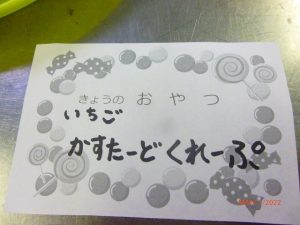 きょうの おやつ
いちご
かすたーどくれーぷ